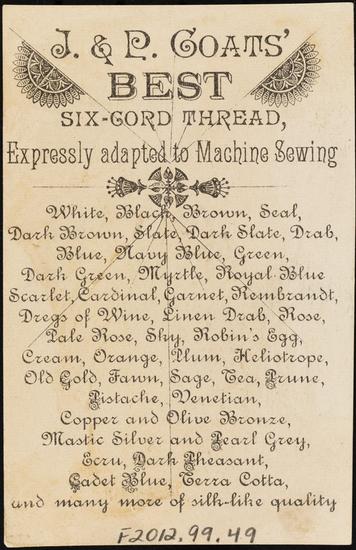 J. & P. COATS'
BEST
SIX-CORD THREAD,
Expressly adapted to Machine Sewing
White, Black, Brown, Seal,
Dark Brown, Slate, Dark Slate, Drab,
Blue, Navy Blue, Green,
Dark Green, Myrtle, Royal Blue
Scarlet, Cardinal, Garnet, Rembrandt,
Dregs of Wine, Linen Drab, Rose,
Pale Rose, Sky, Robin's Egg,
Cream, Orange, Plum, Heliotrope,
Old Gold, Fawn, Sage, Tea, Prune,
Pistache, Venetian,
Copper and Olive Bronze,
Mastic Silver and Pearl Grey,
Ecru, Dark Pheasant,
Cadet Blue, Terra Cotta,
and many more of silk-like quality
F2012.99.49